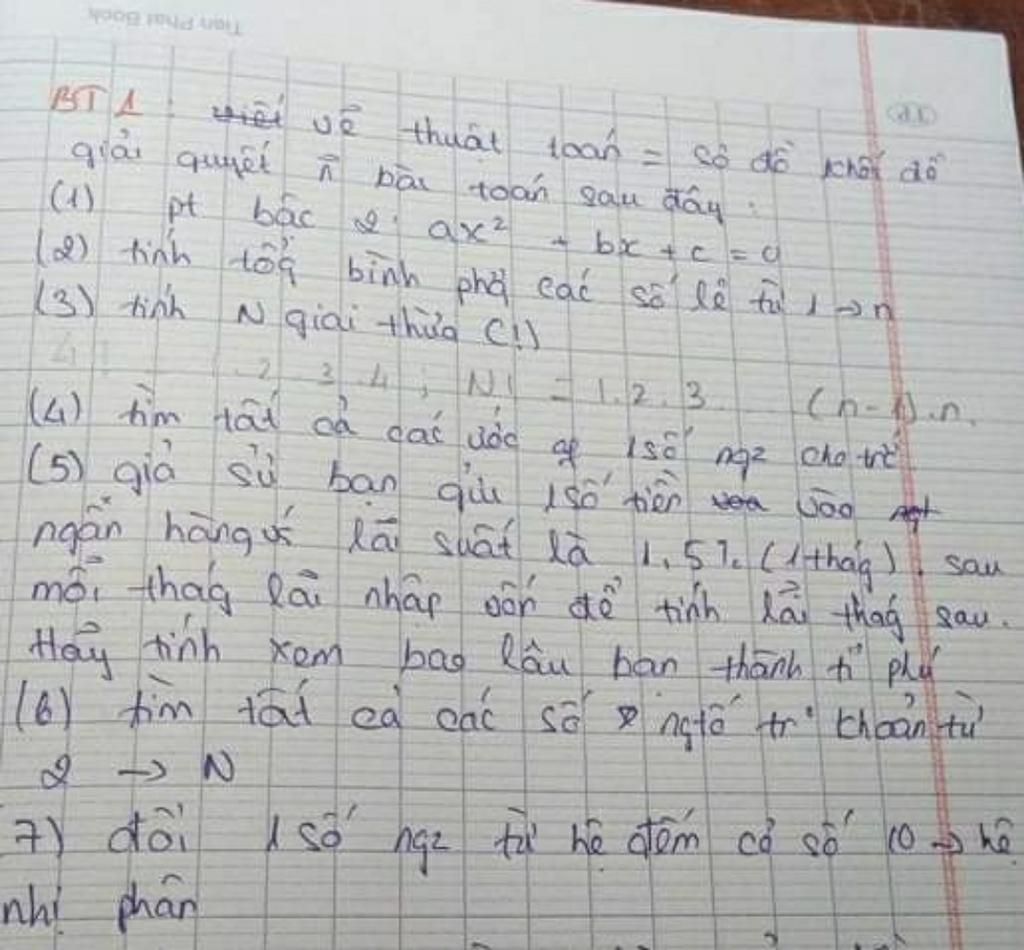 Tien Phat Book
BT 1 : vẽ thuật toán = sơ đồ khối để
giải quyết n̄ bài toán sau đây :
(1) pt bậc 2 : ax² + bx + c = 0
(2) tính tổg bình phg các số lẻ từ 1 → n
(3) tính N giai thừa (!)
4! 2 3 4 ; N! = 1.2.3 (n-1).n.
(4) tìm tất cả các ước of 1 số ngz cho trc
(5) giả sử bạn gửi 1 số tiền vào
ngân hàng vs lãi suất là 1,5% (1 thág). sau
mỗi thág lãi nhập vốn để tính lãi thág sau.
Hãy tính xem bao lâu bạn thành tỉ phú
(6) tìm tất cả các số ngtố tr' khoản từ
2 → N
7) đổi 1 số ngz từ hệ đếm cơ số 10 → hệ
nhị phân